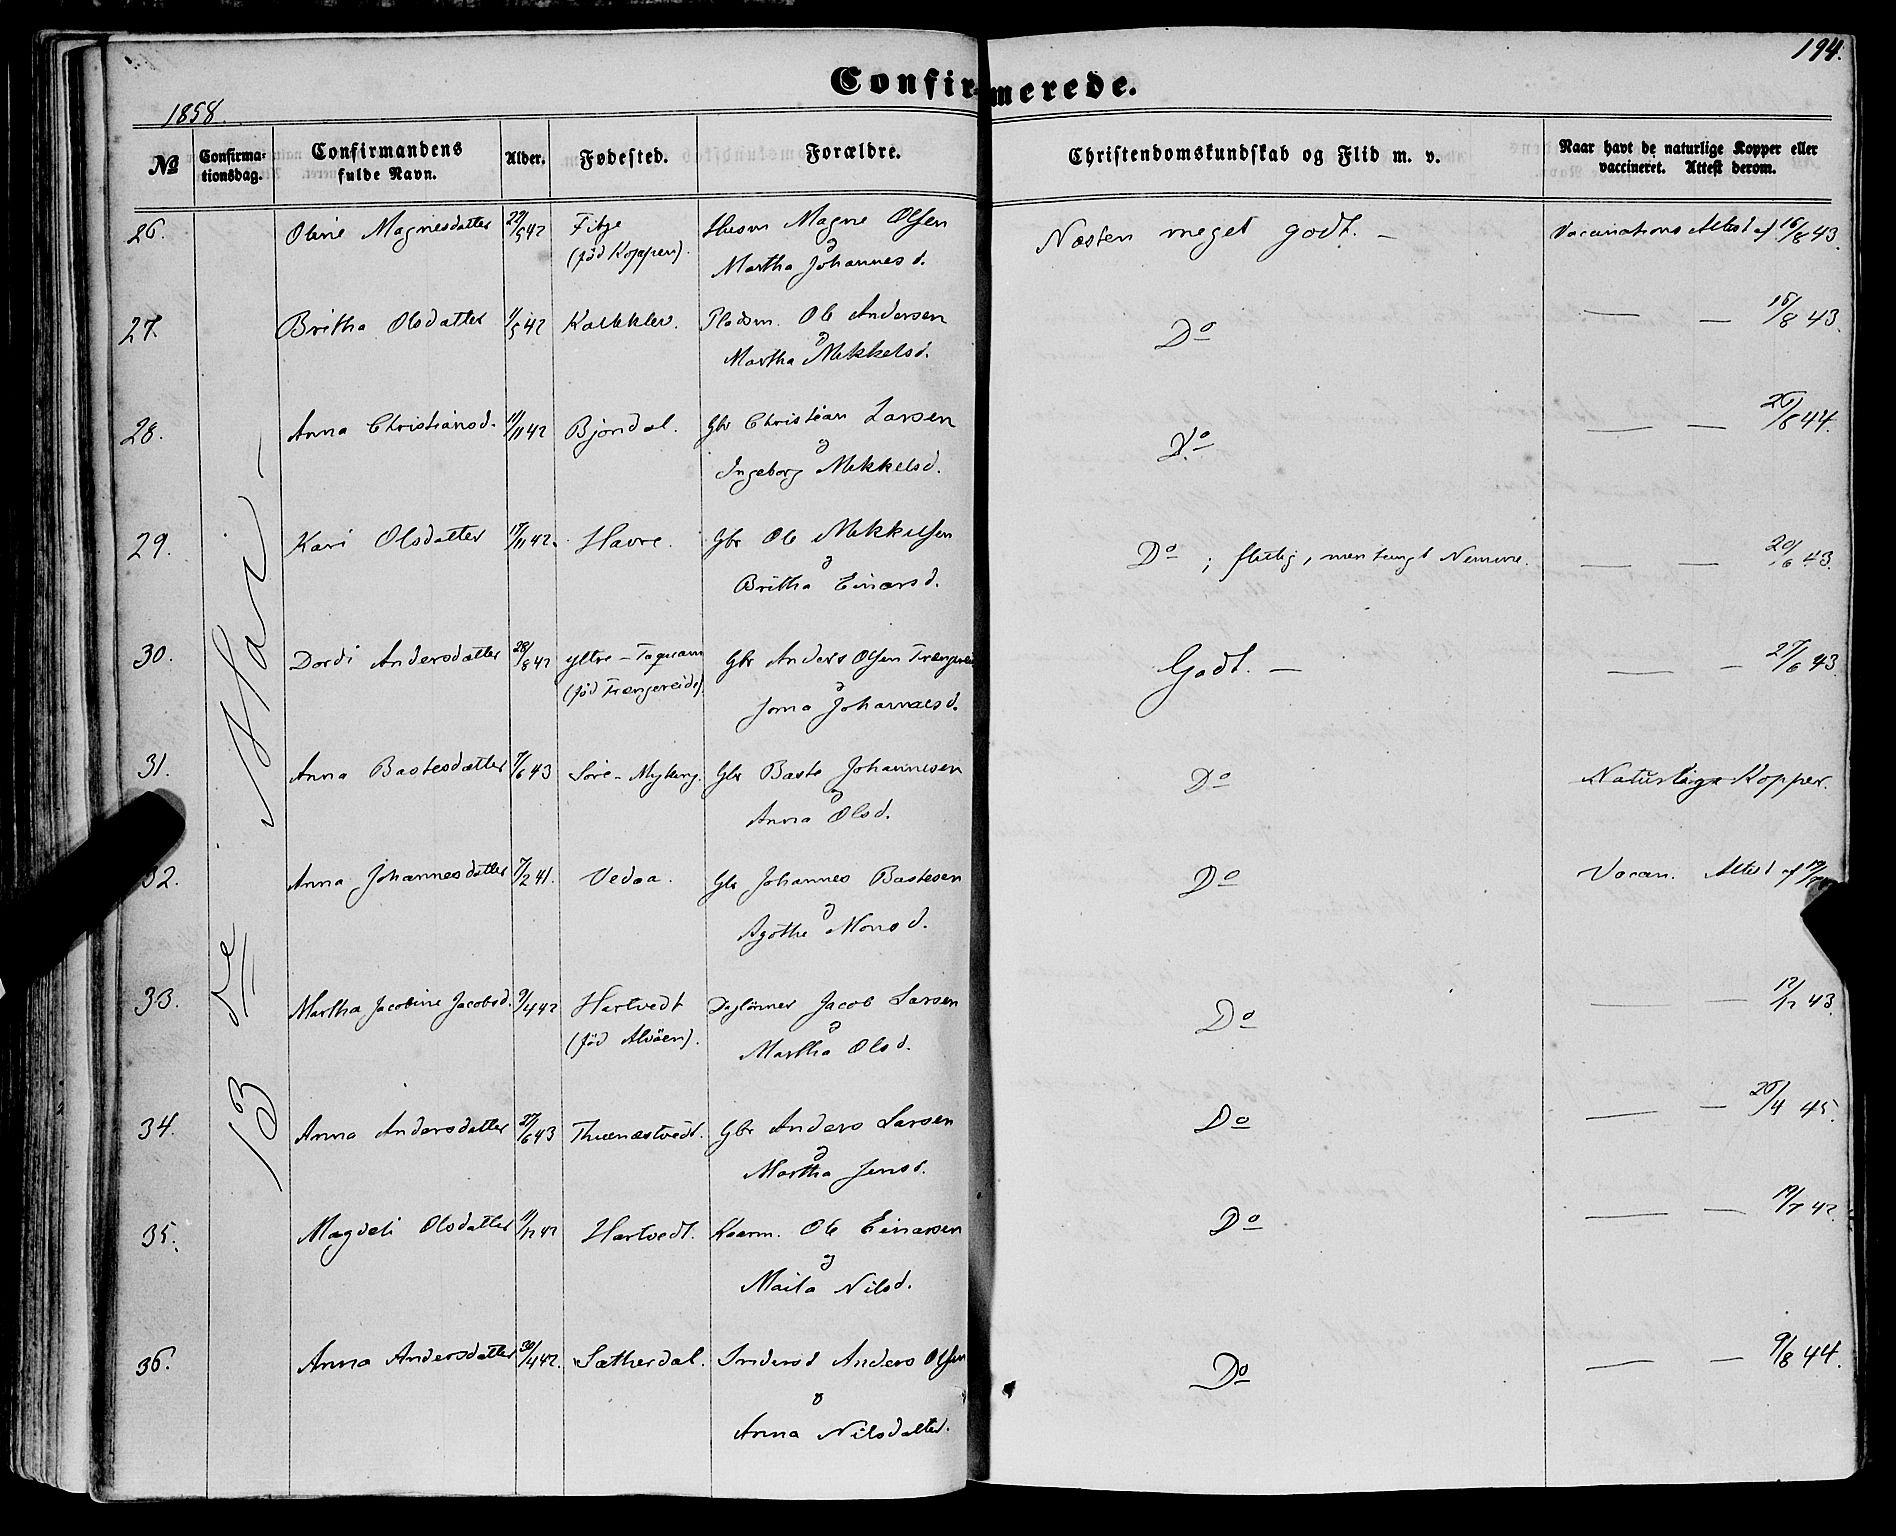 194.
Confirmerede.
1858.
No Confirmationsdag. Confirmandens fulde Navn. Alder. Fødested. Forældre. Christendomskundskab og Flid m. v. Naar havt de naturlige Kopper eller vaccineret. Attest derom.
13de Mai –
26. Oline Magnesdatter 22/5 42 Fitje Husm Magne Olsen Næsten meget godt. – Vaccinations Attest af 16/8 43.
(fød Koppen). & Martha Johannesd.
27. Britha Olsdatter 11/5 42 Pladsm. Ole Andersen Do — — 16/8 43.
& Martha Mikkelsd.
28. Anna Christiansd. 11/11 42 Bjøndal. Gbr Christian Larsen Do — — 26/8 44.
& Ingeborg Mikkelsd.
29. Kari Olsdatter 17/11 42. Havre. Gbr Ole Mikkelsen Do ; flitig, men tungt Nemme. — — 20/6 43.
& Britha Einarsd.
30. Dordi Andersdatter 28/8 42 Ytre-Taquam Gbr Anders Olsen Godt. – — — 27/6 43.
(fød Trængereide) & Johannesd.
31. Anna Bastesdatter 7/6 43 Søre-Myking. Gbr Baste Johannesen Do Naturlige Kopper.
& Anna Olsd.
32. Anna Johannesdatter 7/2 41. Vedaa. Gbr Johannes Bastesen Do Vaccin. Attest af
& Agathe Monsd.
33. Martha Jacobine Jacobsd. 9/4 42 Hartvedt Daglönner Jacob Larsen Do — — 12/12 43.
(fød Alvöen). & Martha Olsd.
34. Anna Andersdatter 27/6 43 Gbr Anders Larsen Do — — 26/4 45.
& Martha Jensd.
35. Magdeli Olsdatter 11/12 42 Hartvedt. Kaarm. Ole Einarsen Do — — 19/7 42.
& Nilsd.
36. Anna Andersdatter 30/4 42. Sætherdal. Anders Olsen Do — — 9/8 44.
& Anna Nilsdatter.